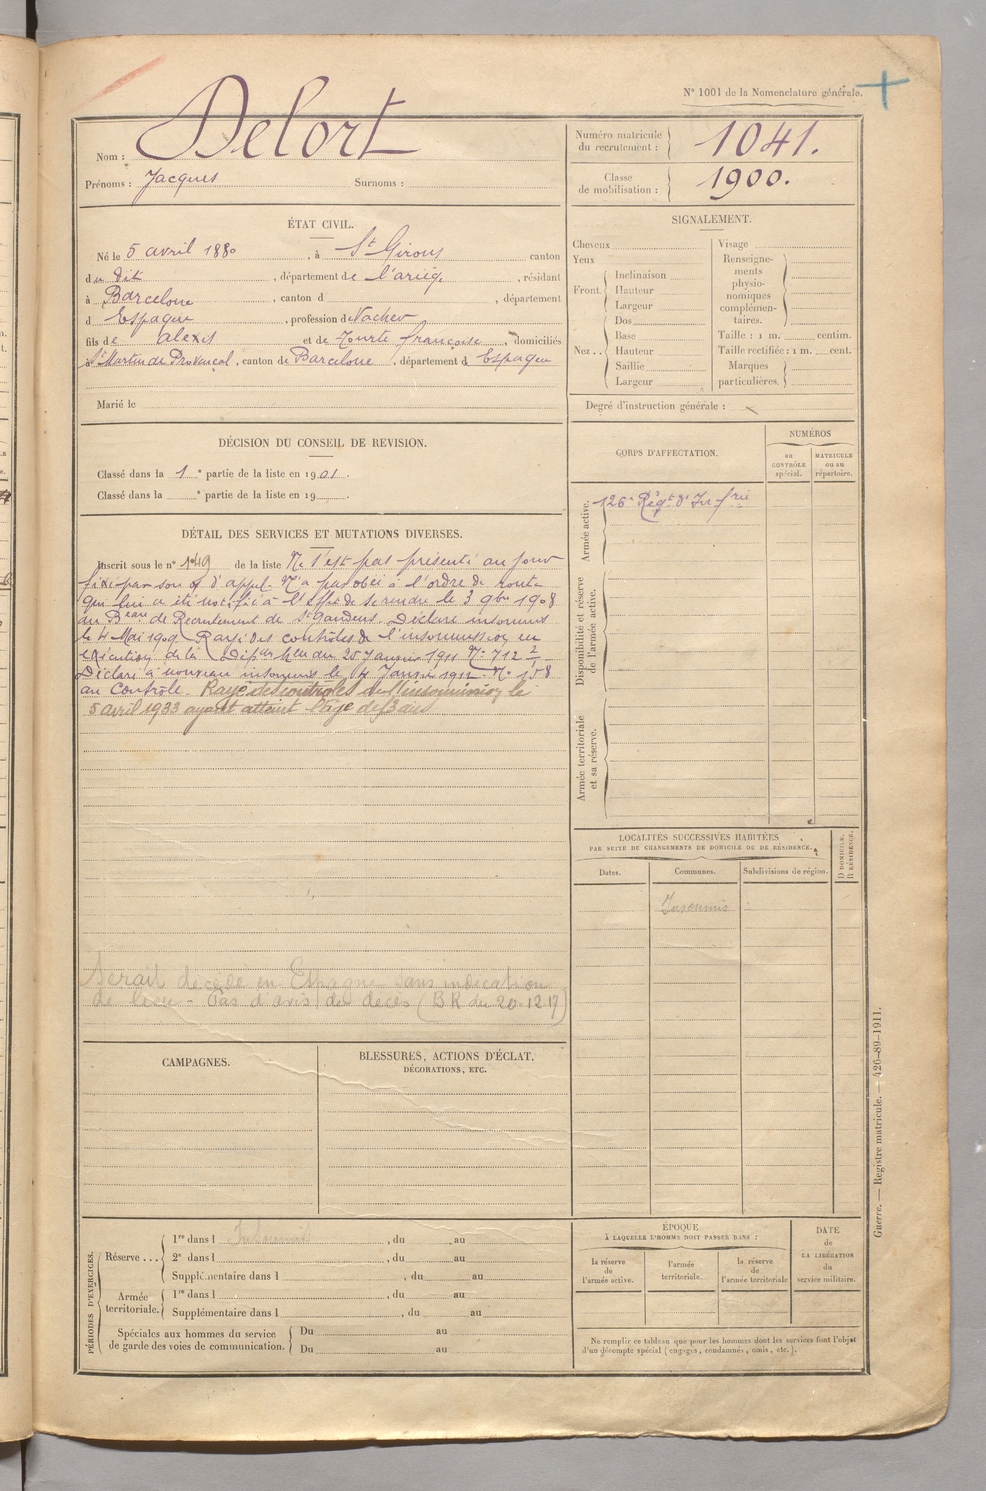 N° 1001 de la Nomenclature générale.
Nom : Delort
Prénoms : Jacques Surnoms :
Numéro matricule du recrutement : 1041.
Classe de mobilisation : 1900.
ÉTAT CIVIL.
Né le 5 avril 1880, à St Girons canton
du dit, département de l'ariège, résidant
à Barcelone, canton d, département
d Espagne, profession de Vacher
fils de alexis et de Tourte françoise, domiciliés
à St Martin de Provençal, canton de Barcelone, département d Espagne
Marié le
SIGNALEMENT.
Cheveux
Yeux
Front. Inclinaison
Hauteur
Largeur
Nez.. Dos
Base
Hauteur
Saillie
Largeur
Visage
Renseignements physionomiques complémentaires.
Taille : 1 m. centim.
Taille rectifiée : 1 m. cent.
Marques particulières.
Degré d'instruction générale :
DÉCISION DU CONSEIL DE REVISION.
Classé dans la 1e partie de la liste en 1901.
Classé dans la e partie de la liste en 19
DÉTAIL DES SERVICES ET MUTATIONS DIVERSES.
Inscrit sous le n° 149 de la liste Ne s'est pas présenté au jour
fixé par son o d'appel. N'a pas obéi à l'ordre de route
qui lui a été notifié à l'effet de se rendre le 3 9bre 1908
au Beau de Recrutement de St Gaudens. Déclaré insoumis
le 4 Mai 1909. Rayé des contrôles de l'insoumission en
exécution de la Dép. du 25 Janvier 1911 N° 712 2/
Déclaré à nouveau insoumis le 4 Janvier 1912. N° 158
au Contrôle. Rayé des contrôles de l'insoumission le
5 avril 1933 ayant atteint l'âge de 53 ans
Serait décédé en Espagne sans indication
de lieu - Pas d'avis de décès (BR du 20.12.17)
CORPS D'AFFECTATION.
NUMÉROS
au CONTRÔLE spécial.
MATRICULE ou au répertoire.
Armée active.
126e Régt d'Infrie
Disponibilité et réserve de l'armée active.
Armée territoriale et sa réserve.
LOCALITÉS SUCCESSIVES HABITÉES
PAR SUITE DE CHANGEMENTS DE DOMICILE OU DE RÉSIDENCE.
D DOMICILE, R RÉSIDENCE.
Dates.
Communes.
Subdivisions de région.
Insoumis
CAMPAGNES.
BLESSURES, ACTIONS D'ÉCLAT,
DÉCORATIONS, ETC.
PÉRIODES D'EXERCICES.
Réserve... 1re dans l Insoumis, du au
2e dans l, du au
Supplémentaire dans l, du au
Armée territoriale. 1re dans l, du au
Supplémentaire dans l, du au
Spéciales aux hommes du service de garde des voies de communication. Du au
Du au
ÉPOQUE
À LAQUELLE L'HOMME DOIT PASSER DANS :
la réserve de l'armée active.
l'armée territoriale.
la réserve de l'armée territoriale
DATE de LA LIBÉRATION du service militaire.
Ne remplir ce tableau que pour les hommes dont les services font l'objet
d'un décompte spécial (engagés, condamnés, omis, etc.).
Guerre. — Registre matricule. — 426-89-1911.